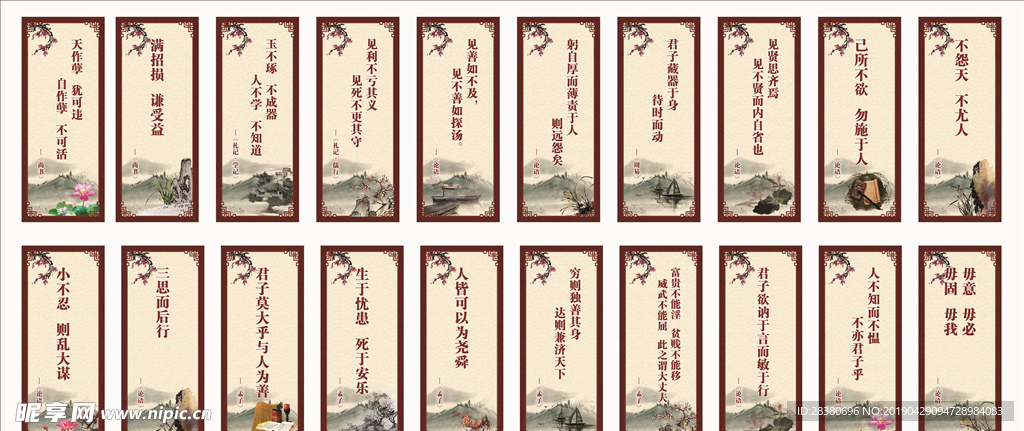 天作孽　犹可违
自作孽　不可活
—尚书
满招损　谦受益
—尚书
玉不琢　不成器
人不学　不知道
—《礼记·学记》
见利不亏其义
见死不更其守
—《礼记·儒行》
见善如不及，
见不善如探汤。
—论语
躬自厚而薄责于人
则远怨矣
—论语
君子藏器于身
待时而动
—周易
见贤思齐焉
见不贤而内自省也
—论语
己所不欲　勿施于人
—论语
不怨天　不尤人
—论语
小不忍　则乱大谋
—论语
三思而后行
—论语
君子莫大乎与人为善
—孟子
生于忧患　死于安乐
—孟子
人皆可以为尧舜
—孟子
穷则独善其身
达则兼济天下
—孟子
富贵不能淫　贫贱不能移
威武不能屈　此之谓大丈夫
—孟子
君子欲讷于言而敏于行
—论语
人不知而不愠
不亦君子乎
—论语
毋意　毋必
毋固　毋我
—论语
昵享网 www.nipic.cn
ID:28380696 NO:20190429094728984083